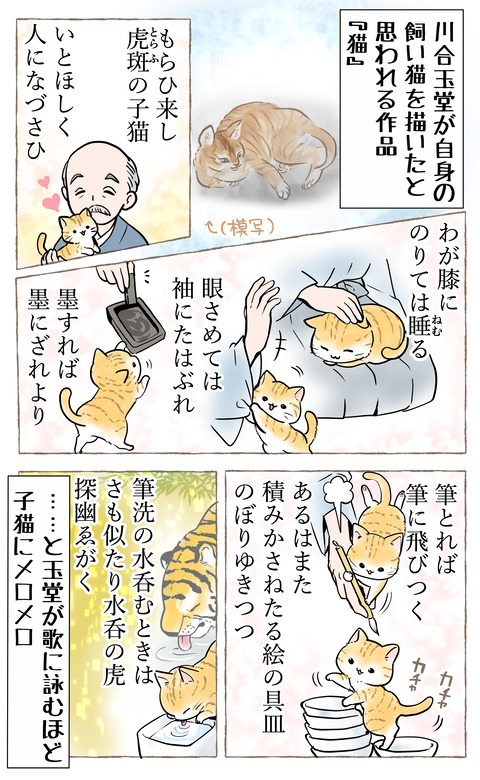 川合玉堂が自身の
飼い猫を描いたと
思われる作品
『猫』
(模写)
もらひ来し
虎斑の子猫
とらふ
いとほしく
人になづさひ
わが膝に
のりては睡る
ねむ
眼さめては
袖にたはぶれ
墨すれば
墨にざれより
筆とれば
筆に飛びつく
あるはまた
積みかさねたる絵の具皿
のぼりゆきつつ
カチャ
カチャ
筆洗の水呑むときは
さも似たり水呑の虎
探幽ゑがく
……と玉堂が歌に詠むほど
子猫にメロメロ